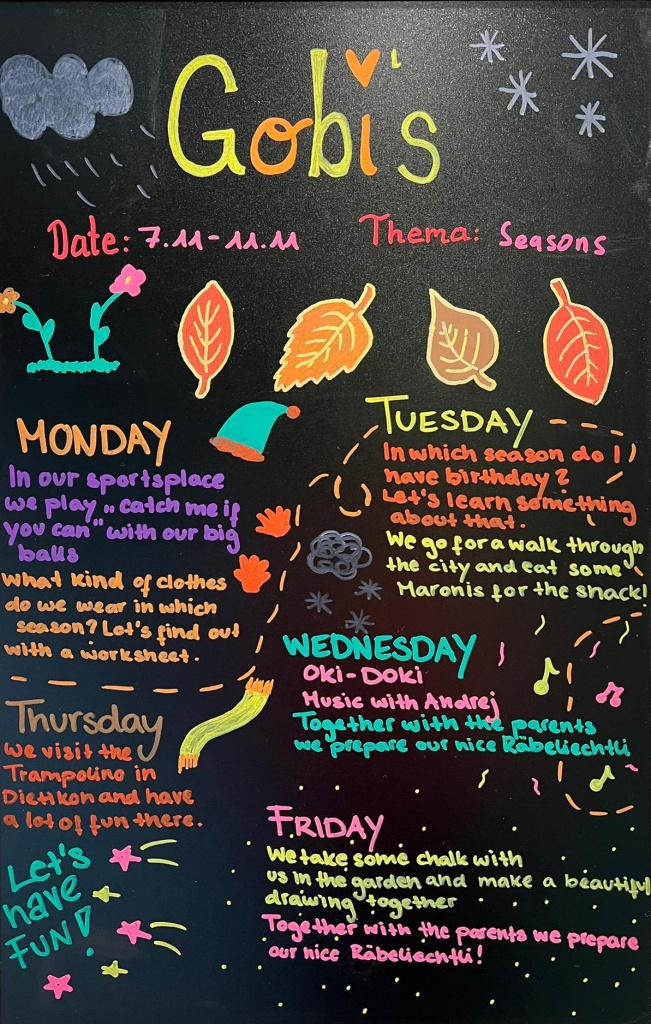 Gobi's
Date: 7.11-11.11
Thema: Seasons
MONDAY
In our sportsplace
we play „catch me if
you can" with our big
balls
What kind of clothes
do we wear in which
season? Lot's find out
with a worksheet.
TUESDAY
In which season do I
have birthday?
Let's learn something
about that.
We go for a walk through
the city and eat some
Maronis for the snack!
WEDNESDAY
Oki-Doki
Music with Andrej
Together with the parents
we prepare our nice Räbeliechtli
Thursday
We visit the
Trampolino in
Dietikon and have
a lot of fun there.
FRIDAY
We take some chalk with
us in the garden and make a beautiful
drawing together
Together with the parents we prepare
our nice Räbeliechtli!
Let's
have
FUN!